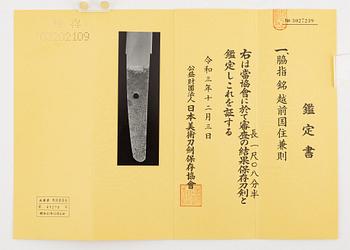 № 3027239
鑑定書
一、脇指 銘 越前国住兼則
長一尺〇八分半
右は當協會に於て審査の結果保存刀剣と
鑑定しこれを証する
令和三年十二月三日
公益財団法人日本美術刀剣保存協會
保存